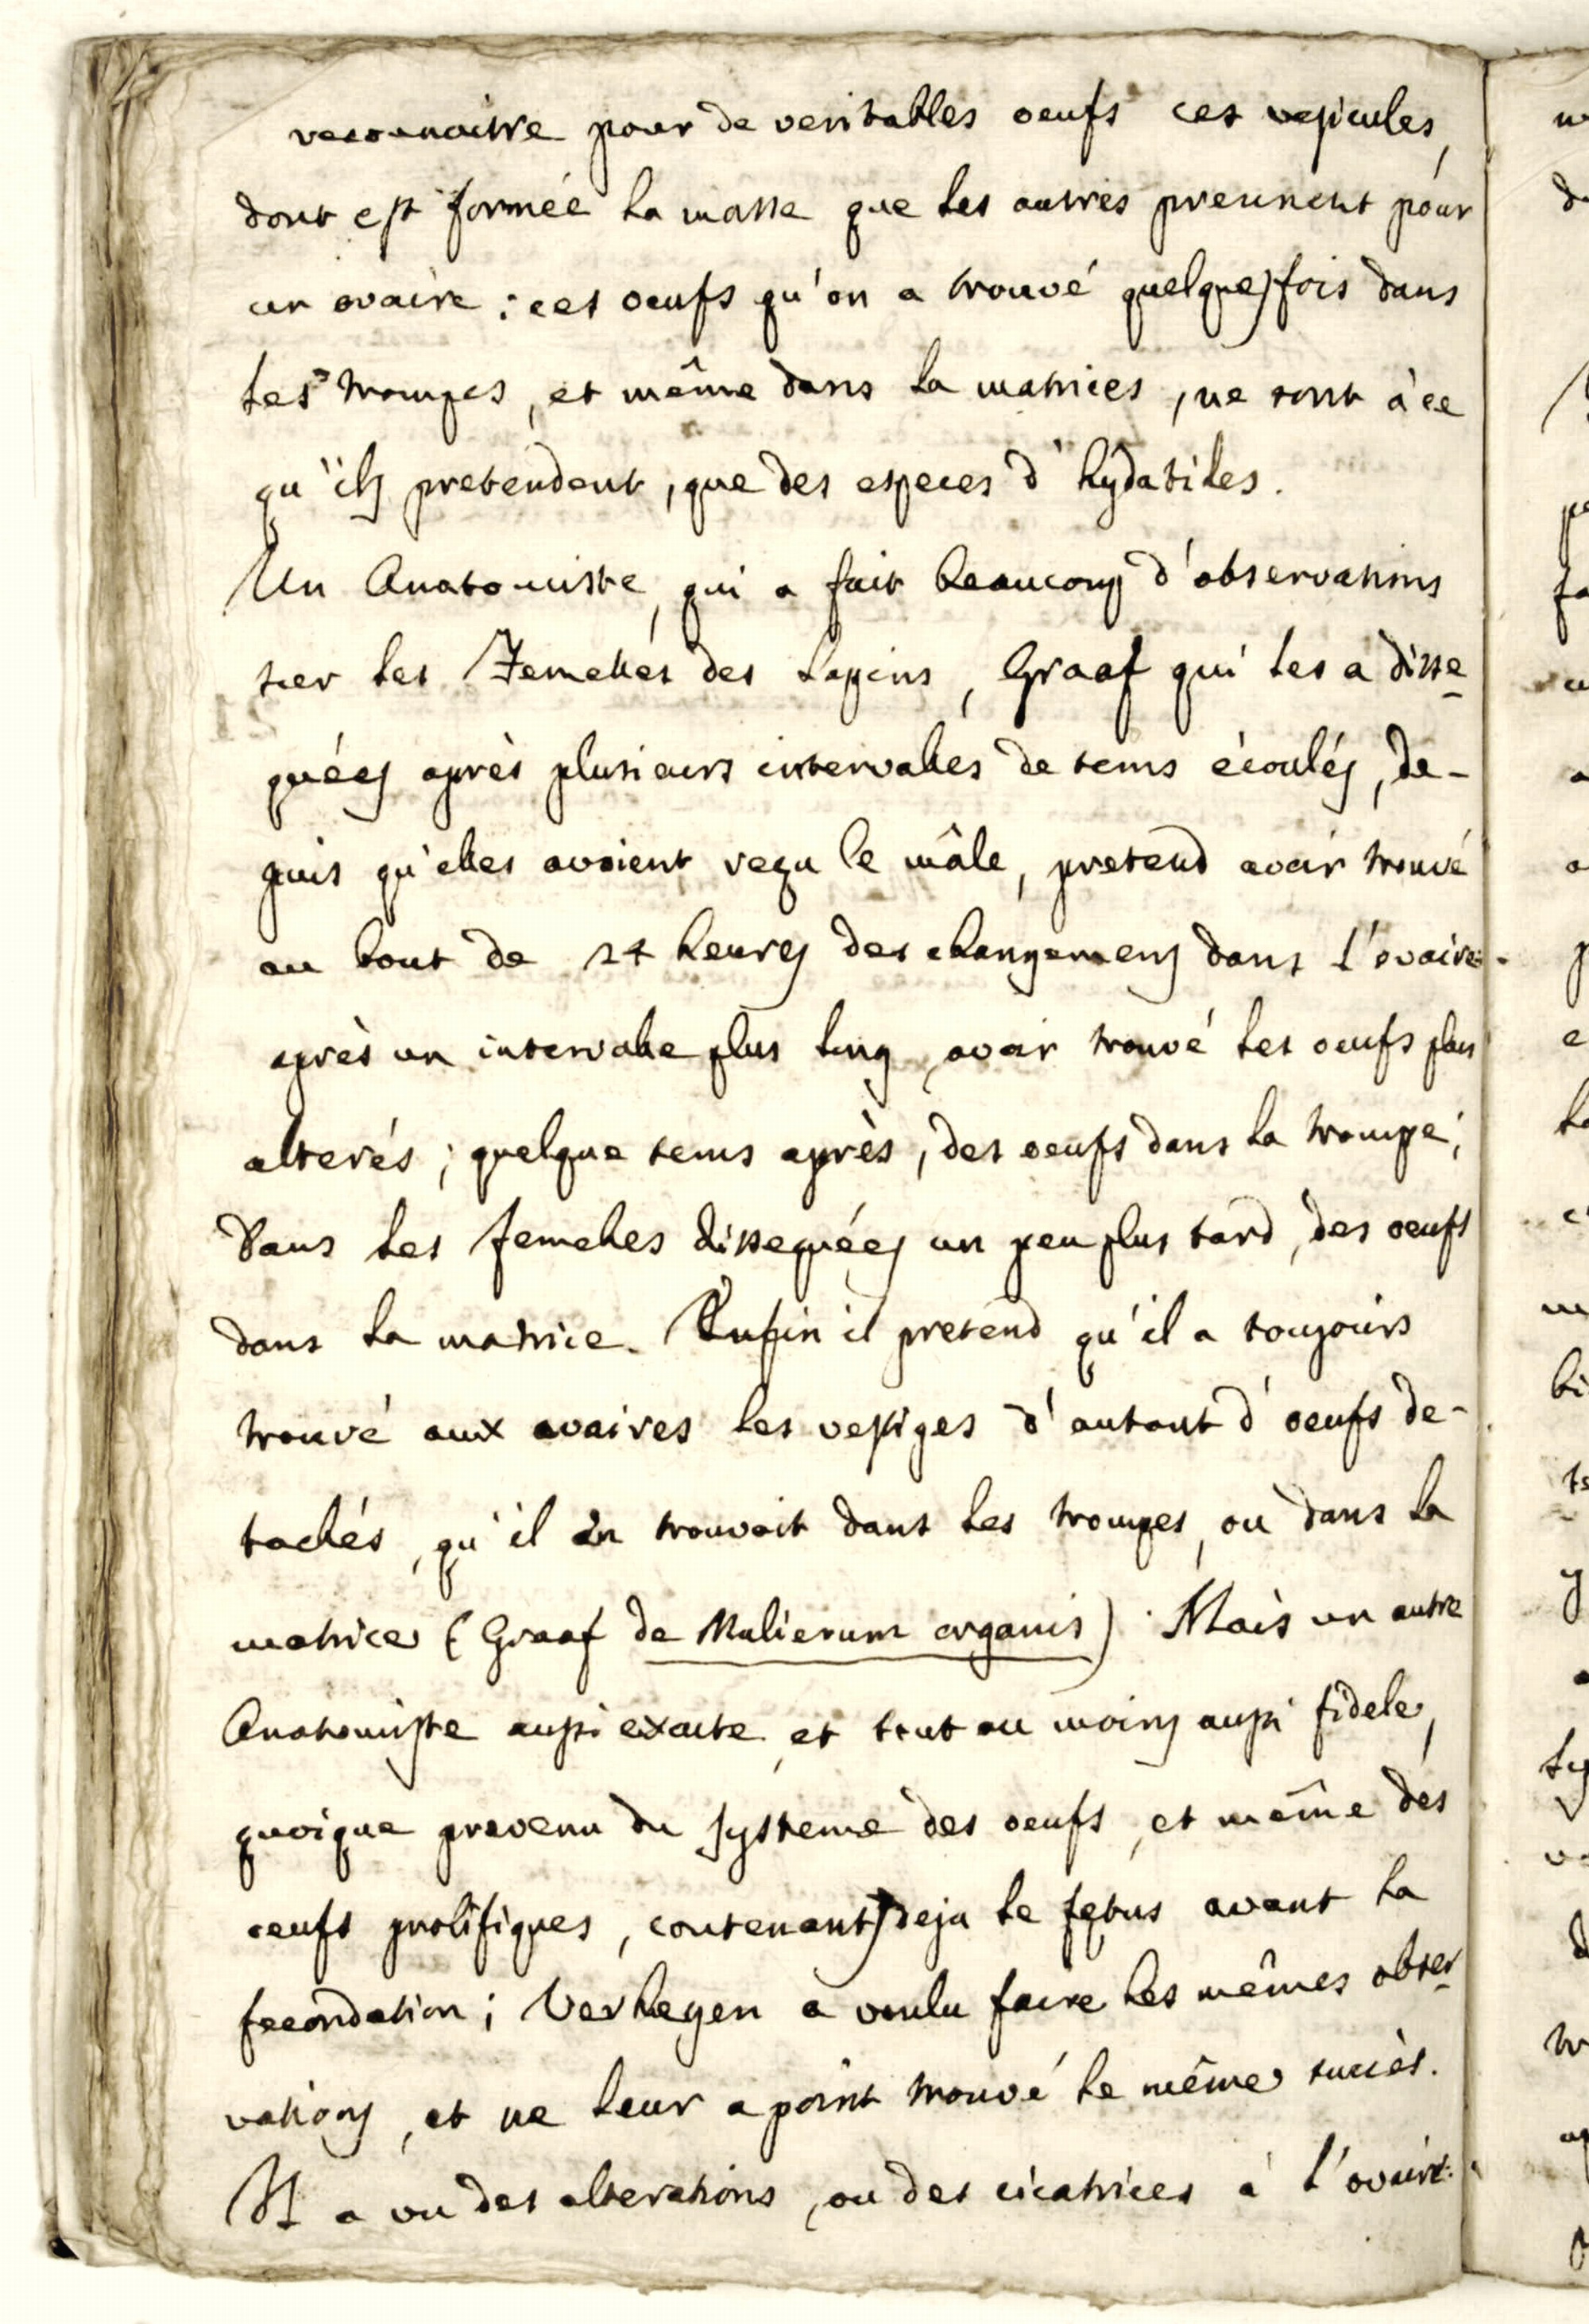 reconoitre pour de veritables oeufs ces vesicules,
dont est formée la masse que les autres prennent pour
un ovaire : ces oeufs qu'on a trouvé quelquesfois dans
les trompes, et même dans la matrices, ne sont à ce
qu'ils pretendent, que des especes d'hydatiles.
Un Anatomiste, qui a fait beaucoup d'observations
sur les Femelles des Lapins, Graaf qui les a disse-
quées après plusieurs intervalles de tems écoulés, de-
puis qu'elles avoient reçu le mâle, pretend avoir trouvé
au bout de 24 heures des changemens dans l'ovaire.
après un intervalle plus long, avoir trouvé les oeufs plus
alterés ; quelque tems après, des oeufs dans la trompe ;
Dans les femelles dissequées un peu plus tard, des oeufs
dans la matrice. Enfin il pretend qu'il a toujours
trouvé aux ovaires les vestiges d'autant d'oeufs de-
tachés, qu'il en trouvoit dans les trompes, ou dans la
matrice (Graaf de Mulierum organis). Mais un autre
Anatomiste aussi exacte, et tout au moins aussi fidele,
quoique prevenu du systeme des oeufs, et même des
oeufs prolifiques, contenants deja le fętus avant la
fecondation ; Verheyen a voulu faire les mêmes obser-
vations, et ne leur a point trouvé le même succès.
Il a vu des alterations, ou des cicatrices à l'ovaire.